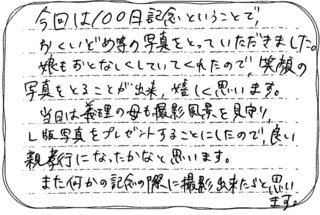 今回は100日記念ということで、
おくいどめ等の写真をとっていただきました。
娘もおとなしくしていてくれたので、笑顔の
写真をとることが出来、嬉しく思います。
当日は義理の母も撮影風景を見守り、
L版写真をプレゼントすることにしたので、良い
親孝行になったかなと思います。
また何かの記念の際に撮影出来たらと思い
ます。